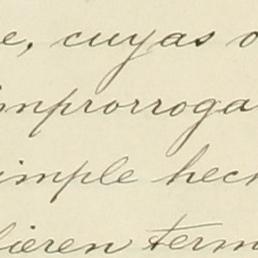 e, cuyas o
improrroga
simple hech
bieren term